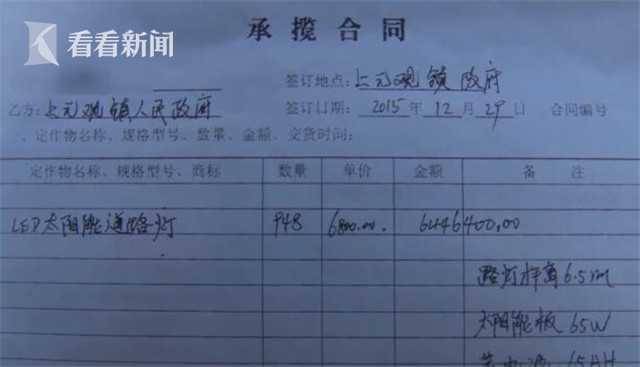 看看新闻
承揽合同
签订地点：上元观镇政府
乙方：上元观镇人民政府 签订日期：2015年12月29日 合同编号
一、定作物名称、规格型号、数量、金额、交货时间：
定作物名称、规格型号、商标 数量 单价 金额 备 注
LED太阳能道路灯 948 6800.00. 6446400.00
路灯杆高6.5m
太阳能板65W